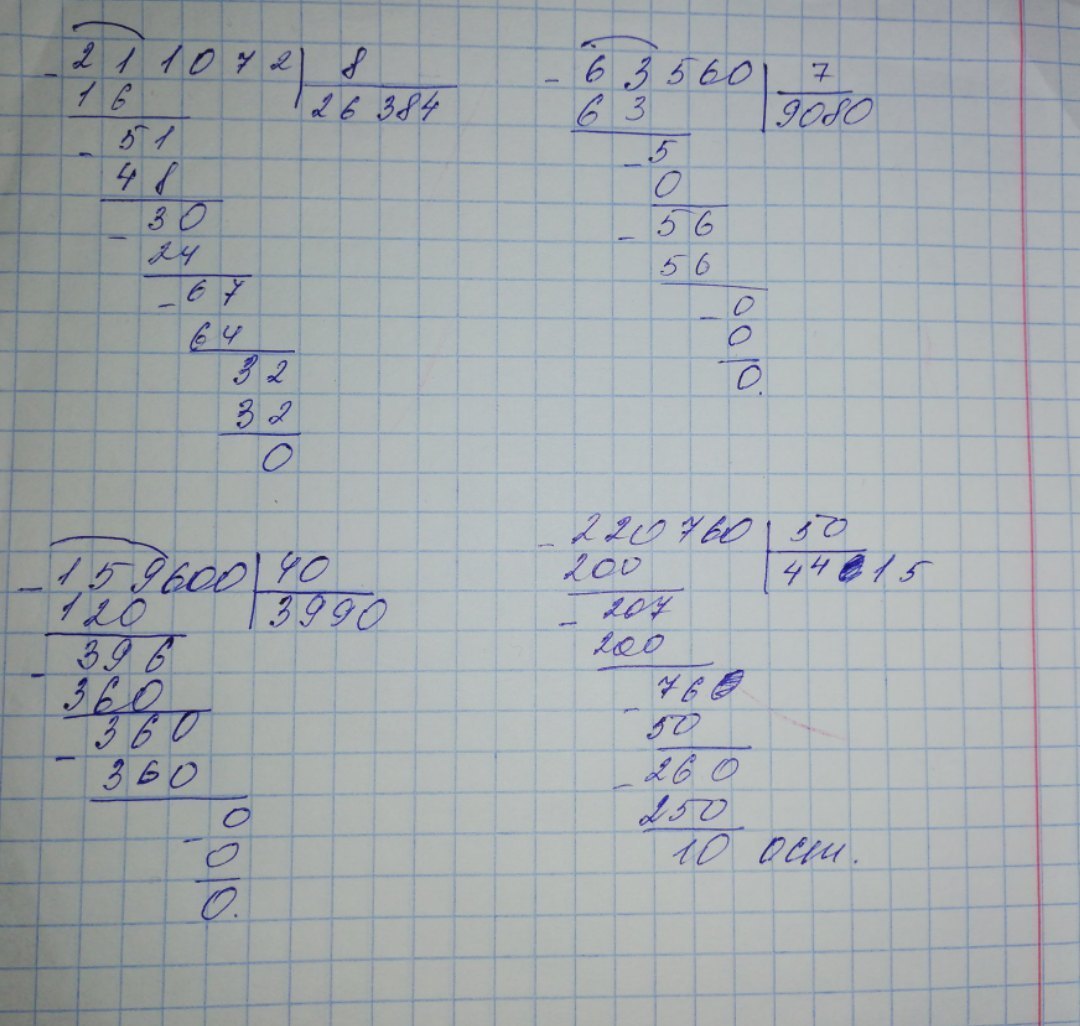 - 211072 | 8
16 26384
- 51
48
- 30
24
- 67
64
32
32
0
- 63560 | 7
63 9080
- 5
0
- 56
56
- 0
0
0.
- 159600 | 40
120 3990
- 396
360
- 360
360
0
- 0
0.
- 220760 | 50
200 4415
- 207
200
- 76
50
- 260
250
10 ост.